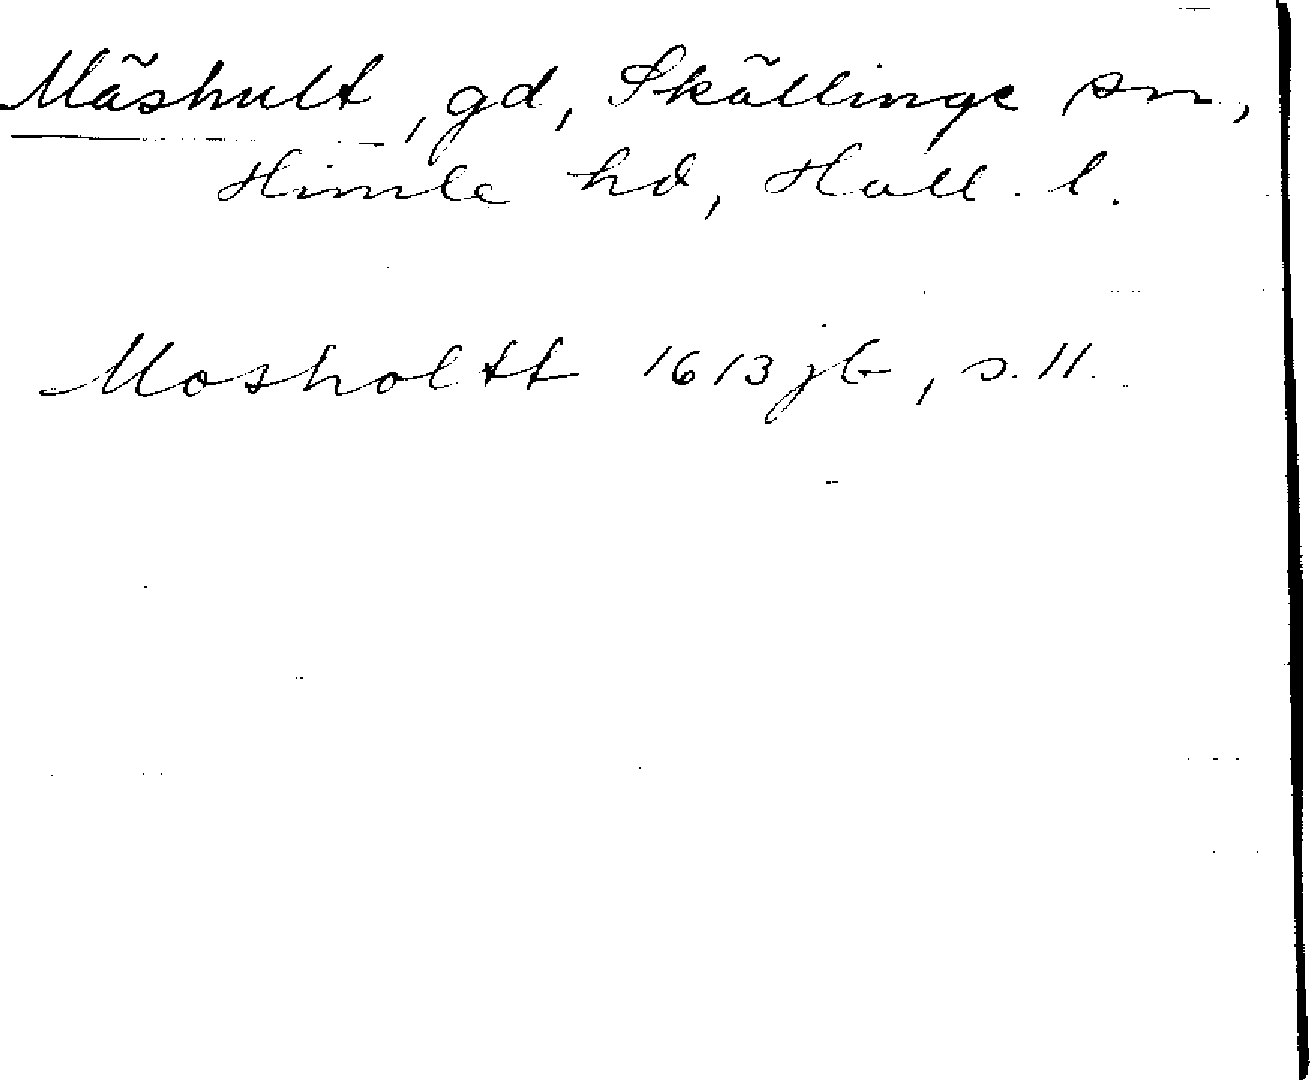 Mäshult, gd, Skällinge sn,
Himle hd, Hall. l.
Mosholtt 1613 jb, s. 11.